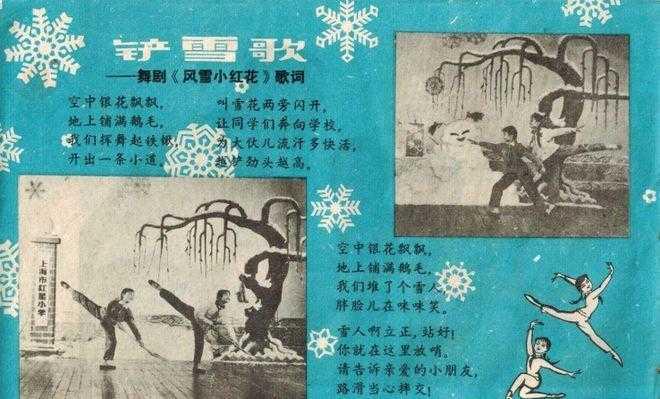 铲雪歌
——舞剧《风雪小红花》歌词
空中银花飘飘，
地上铺满鹅毛，
我们挥舞起铁锹，
开出一条小道。
叫雪花两旁闪开，
让同学们奔向学校，
为大伙儿流汗多快活，
越铲劲头越高。
上海市红星小学
空中银花飘飘，
地上铺满鹅毛，
我们堆了个雪人，
胖脸儿在咪咪笑。
雪人啊立正，站好！
你就在这里放哨。
请告诉亲爱的小朋友，
路滑当心摔交！